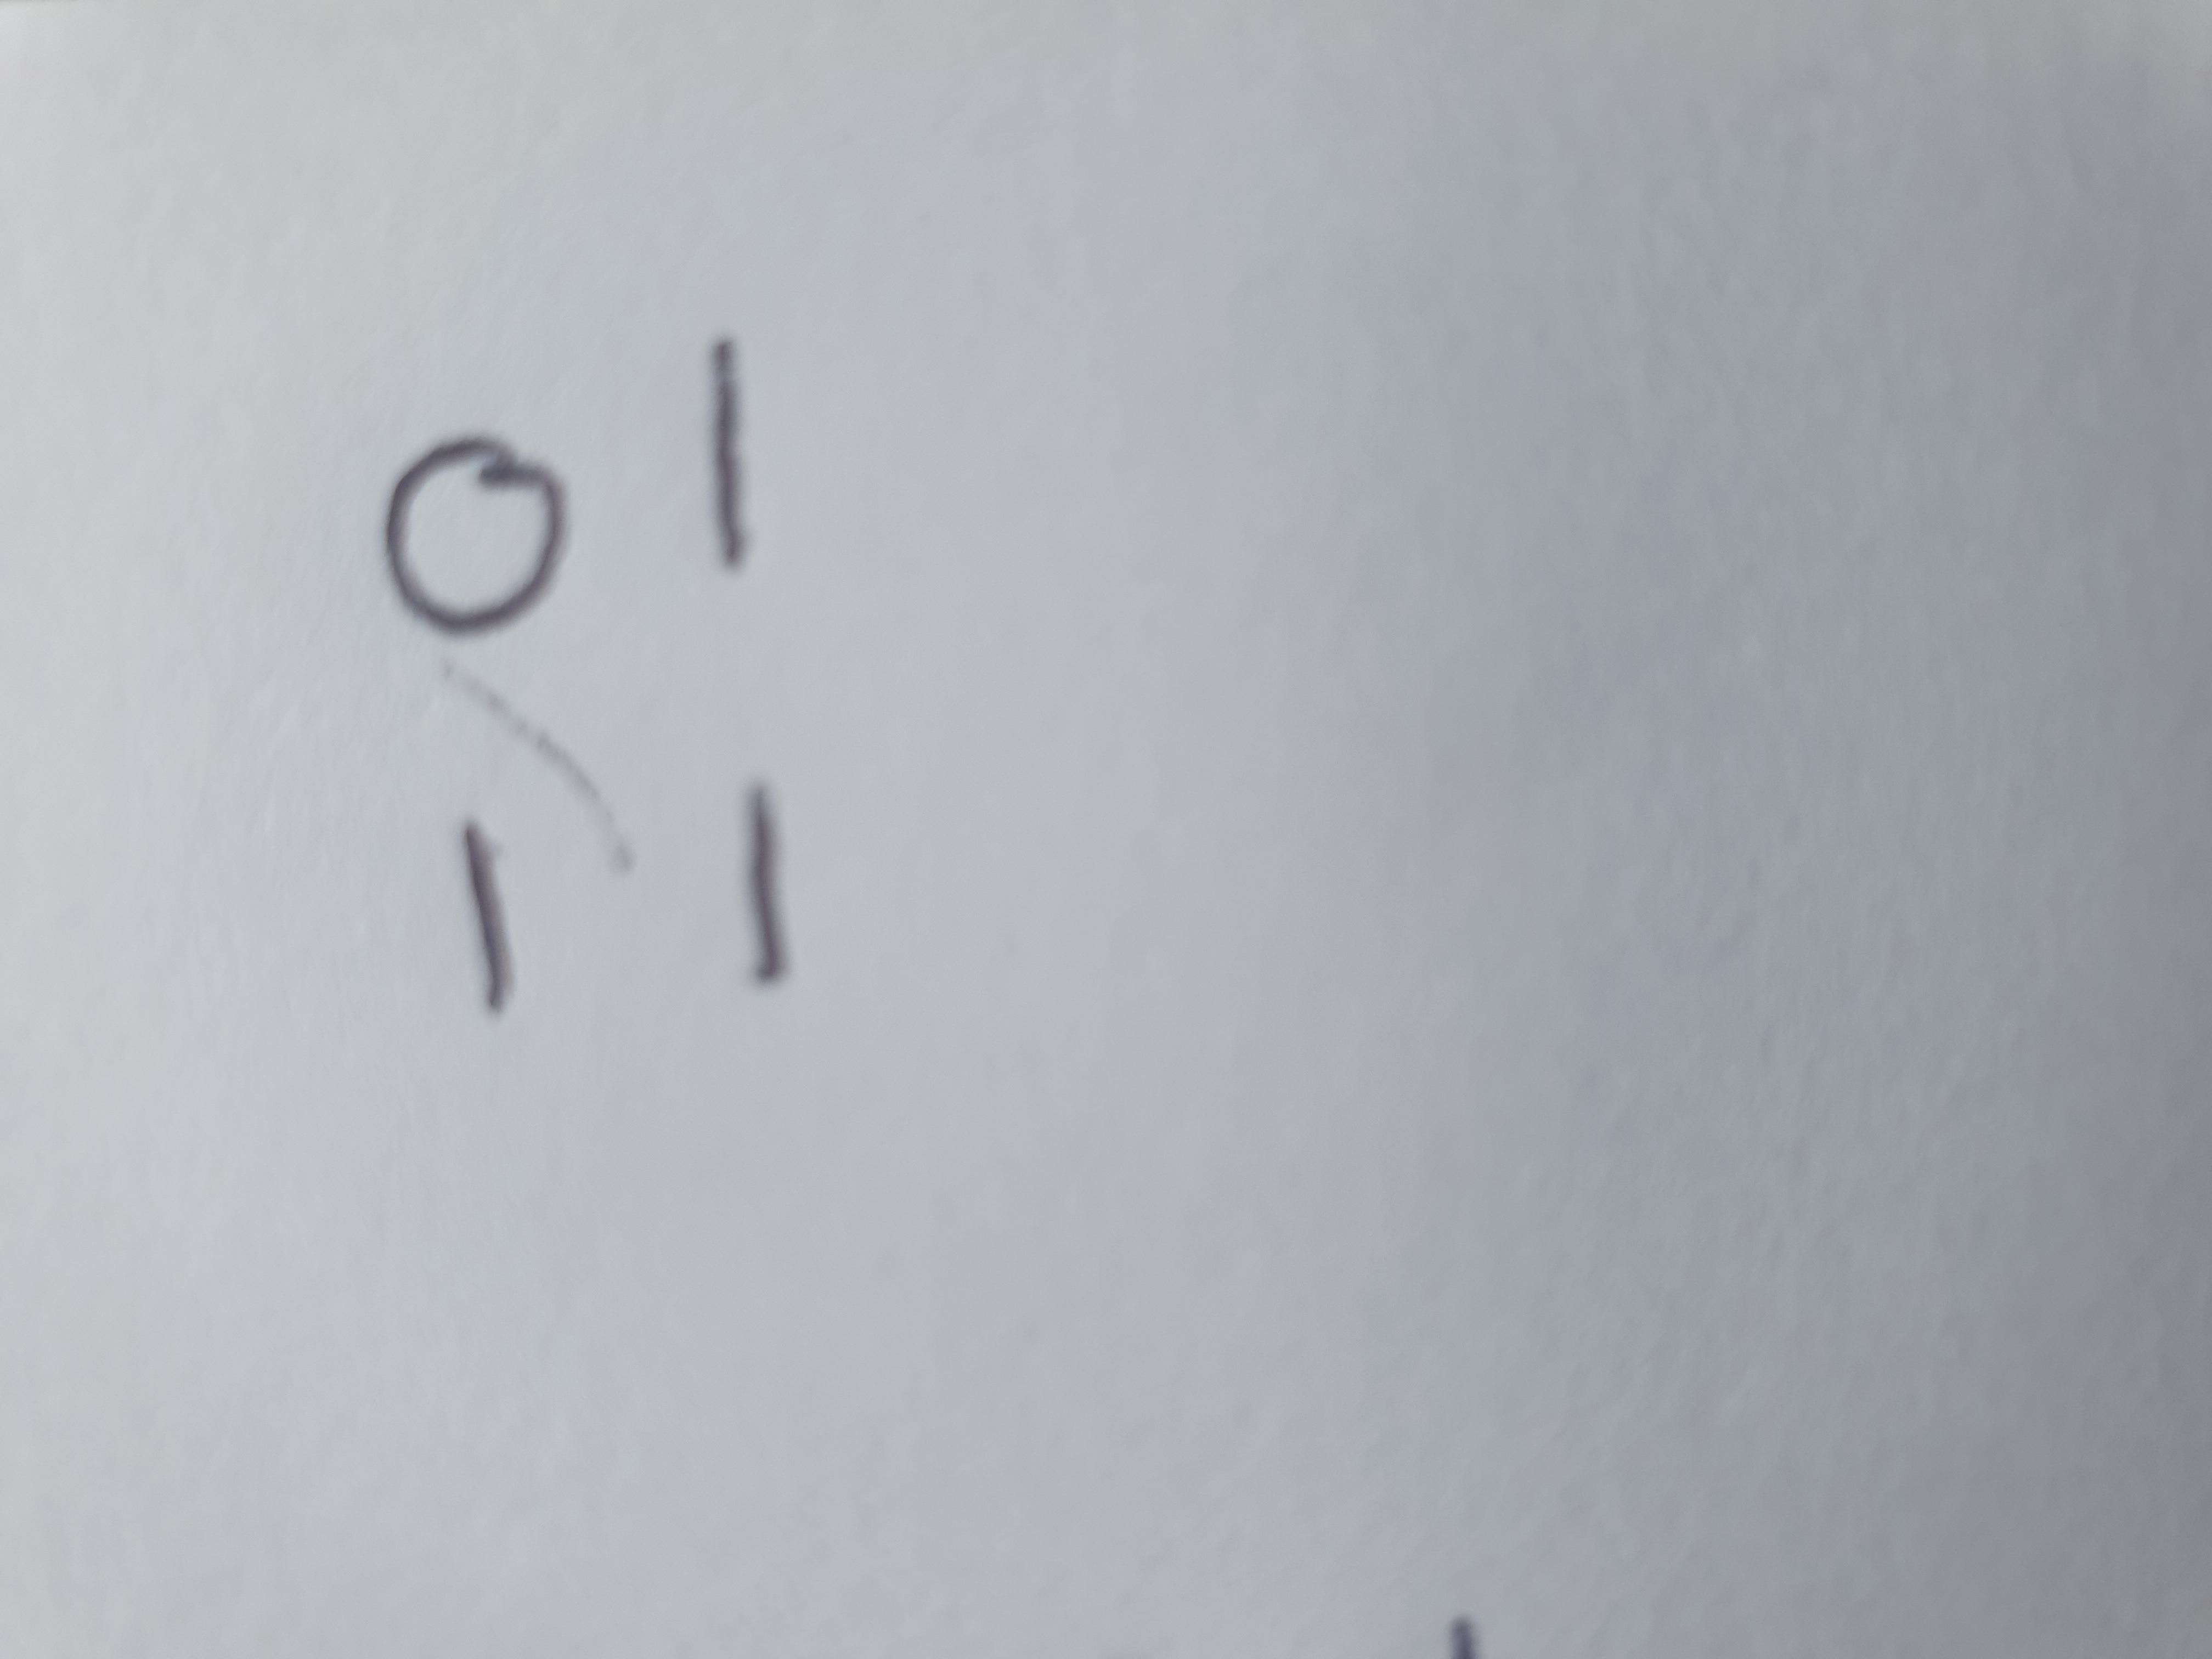 0 1
1 1